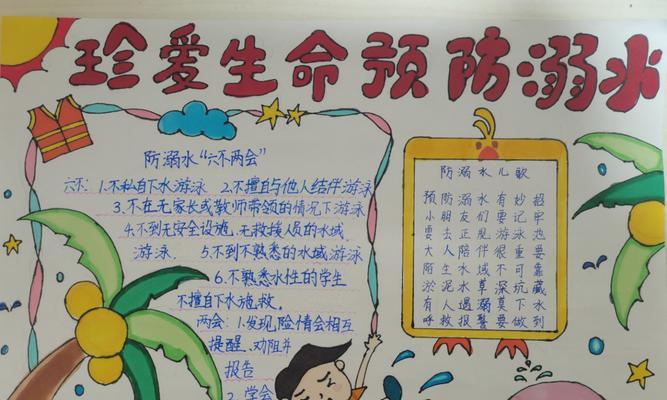 珍爱生命预防溺水
防溺水“六不两会”
六不:1.不私自下水游泳 2.不擅自与他人结伴游泳
3.不在无家长或教师带领的情况下游泳
4.不到无安全设施、无救援人员的水域
游泳. 5.不到不熟悉的水域游泳
6.不熟悉水性的学生
不擅自下水施救。
两会:1.发现险情会相互
提醒、劝阻并
报告
2.学会
防溺水儿歌
预防溺水有妙招
小朋友们要记牢
要去正规游泳池
大人陪伴很重要
陌生水域不可靠
淤泥水草深坑藏
有人遇溺莫下水
呼救报警要做到